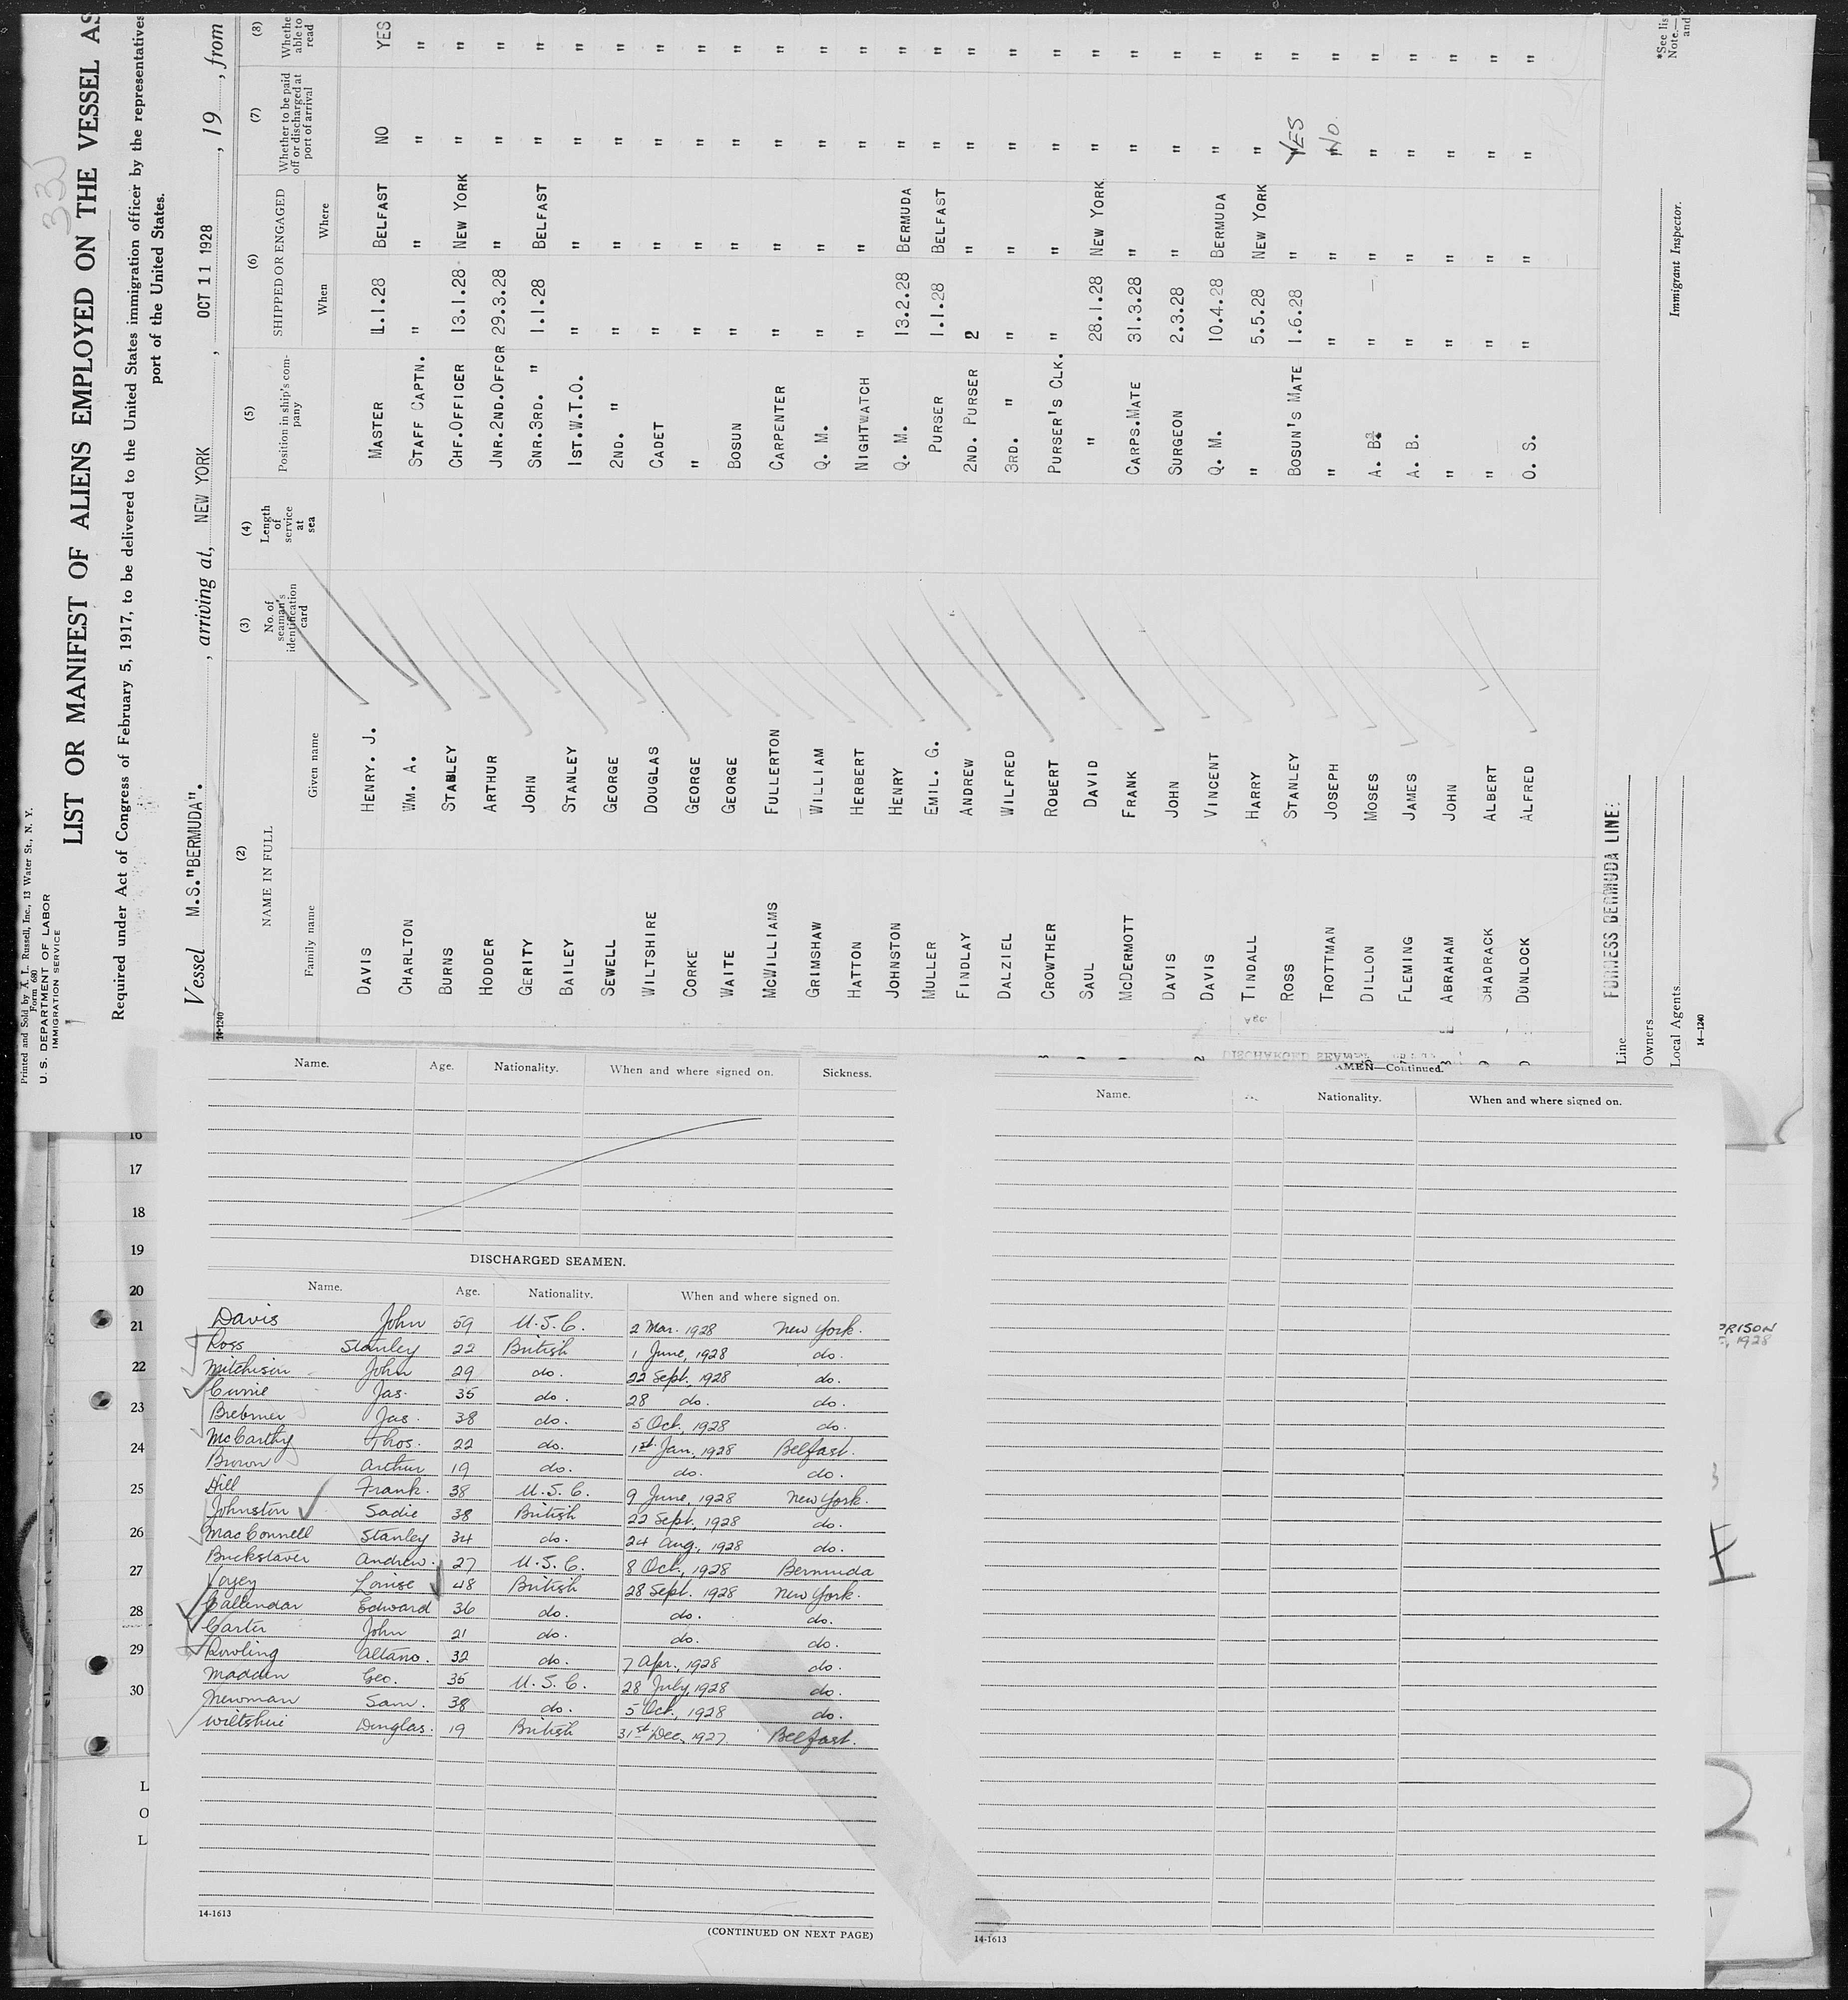 Printed and Sold by A. L. Russell, Inc., 13 Water St., N. Y.
Form 680
U. S. DEPARTMENT OF LABOR
IMMIGRATION SERVICE
LIST OR MANIFEST OF ALIENS EMPLOYED ON THE VESSEL AS
Required under Act of Congress of February 5, 1917, to be delivered to the United States immigration officer by the representatives
port of the United States.
Vessel M.S."BERMUDA". , arriving at, NEW YORK , OCT 11 1928 , 19 , from
14-1240
(2) (3) (4) (5) (6) (7) (8)
NAME IN FULL No. of seaman's identification card Length of service at sea Position in ship's company SHIPPED OR ENGAGED Whether to be paid off or discharged at port of arrival Whethe able to read
Family name Given name When Where
DAVIS HENRY. J. MASTER 1.1.28 BELFAST NO YES
CHARLTON WM. A. STAFF CAPTN. " " " "
BURNS STABLEY CHF.OFFICER 13.1.28 NEW YORK " "
HODDER ARTHUR JNR.2ND.OFFCR 29.3.28 " " "
GERITY JOHN SNR.3RD. " 1.1.28 BELFAST " "
BAILEY STANLEY 1ST.W.T.O. " " " "
SEWELL GEORGE 2ND. " " " " "
WILTSHIRE DOUGLAS CADET " " " "
CORKE GEORGE " " " " "
WAITE GEORGE BOSUN " " " "
McWILLIAMS FULLERTON CARPENTER " " " "
GRIMSHAW WILLIAM Q. M. " " " "
HATTON HERBERT NIGHTWATCH " " " "
JOHNSTON HENRY Q. M. 13.2.28 BERMUDA " "
MULLER EMIL. G. PURSER 1.1.28 BELFAST " "
FINDLAY ANDREW 2ND. PURSER 2 " " "
DALZIEL WILFRED 3RD. " " " " "
CROWTHER ROBERT PURSER'S CLK. " " " "
SAUL DAVID " 28.1.28 NEW YORK " "
McDERMOTT FRANK CARPS.MATE 31.3.28 " " "
DAVIS JOHN SURGEON 2.3.28 " " "
DAVIS VINCENT Q. M. 10.4.28 BERMUDA " "
TINDALL HARRY " 5.5.28 NEW YORK " "
ROSS STANLEY BOSUN'S MATE 1.6.28 " YES "
TROTTMAN JOSEPH " " " NO. "
DILLON MOSES A. B. " " " "
FLEMING JAMES A. B. " " " "
ABRAHAM JOHN " " " " "
SHADRACK ALBERT " " " " "
DUNLOCK ALFRED O. S. " " " "
Line FURNESS BERMUDA LINE:
Owners
Local Agents
Immigrant Inspector.
*See lis
Note.—
and
14—1240
Name. Age. Nationality. When and where signed on. Sickness.
DISCHARGED SEAMEN.
Name. Age. Nationality. When and where signed on.
Davis John 59 U.S.C. 2 Mar. 1928 New York.
Ross Stanley 22 British 1 June, 1928 do.
Mitchison John 29 do. 22 Sept. 1928 do.
Currie Jas. 35 do. 28 do. do.
Brebner Jas. 38 do. 5 Oct., 1928 do.
McCarthy Thos. 22 do. 1st Jan, 1928 Belfast.
Brown Arthur 19 do. do. do.
Hill Frank. 38 U.S.C. 9 June, 1928 New York.
Johnston Sadie 38 British 22 Sept, 1928 do.
MacConnell Stanley 34 do. 24 Aug, 1928 do.
Buckstaver Andrew. 27 U.S.C. 8 Oct, 1928 Bermuda
Louise 48 British 28 Sept. 1928 New York.
Callendar Edward 36 do. do. do.
Carter John 21 do. do. do.
Rowling 32 do. 7 Apr., 1928 do.
Madden Geo. 35 U.S.C. 28 July, 1928 do.
Newman Sam. 38 do. 5 Oct, 1928 do.
Wiltshire Douglas. 19 British 31st Dec, 1927 Belfast.
14-1613
(CONTINUED ON NEXT PAGE)
AMEN—Continued.
Name. Nationality. When and where signed on.
14-1613
16
17
18
19
20
21
22
23
24
25
26
27
28
29
30
L
O
L
PRISON
1928